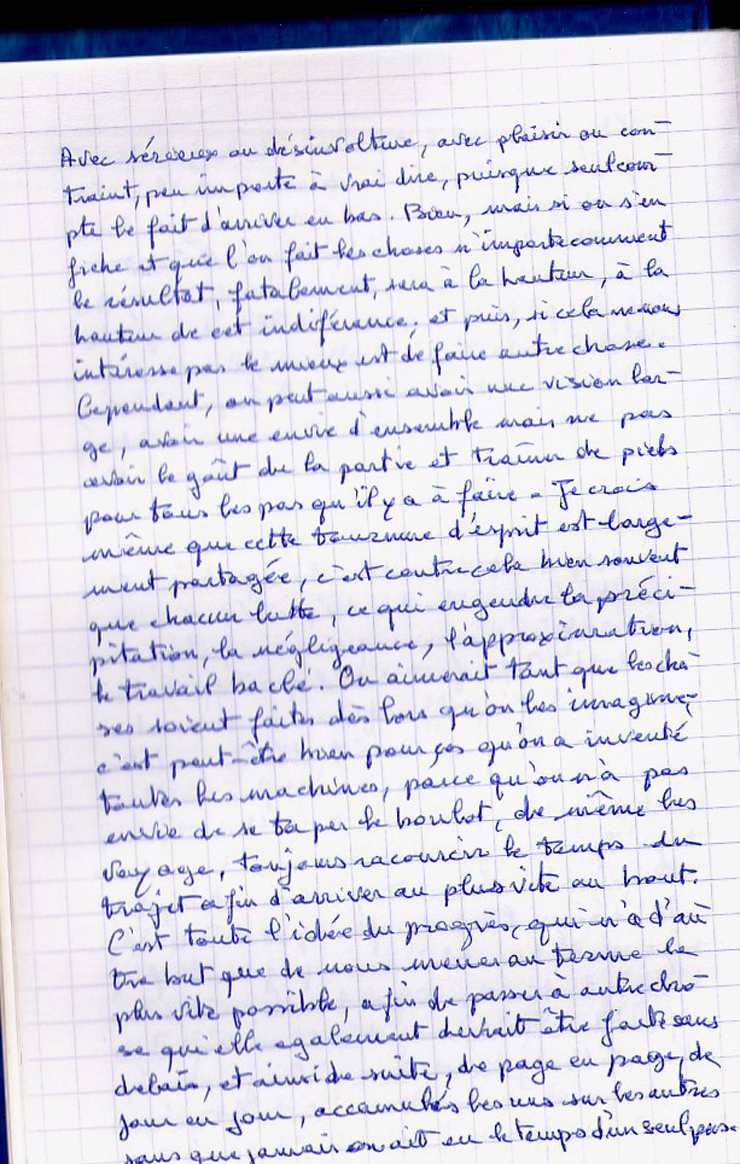 Avec sérieux ou désinvolture, avec plaisir ou con-
traint, peu importe à vrai dire, puisque seul com-
pte le fait d'arriver en bas. Bien, mais si on s'en
fiche et que l'on fait les choses n'importe comment
le résultat, fatalement, sera à la hauteur, à la
hauteur de cet indiférence, et puis, si cela ne nous
intéresse pas le mieux est de faire autre chose.
Cependant, on peut aussi avoir une vision lar-
ge, avoir une envie d'ensemble mais ne pas
avoir le goût de la partie et traîner de pieds
pour tous les pas qu'il y a à faire. Je crois
même que cette tournure d'esprit est large-
ment partagée, c'est contre cela bien souvent
que chacun lutte, ce qui engendre la préci-
pitation, la négligeance, l'approximation,
le travail baclé. On aimerait tant que les cho-
ses soient faites dès lors qu'on les imagine,
c'est peut-être bien pour ça qu'on a inventé
toutes les machines, parce qu'on n'a pas
envie de se taper le boulot, de même les
voyage, toujours racourcir le temps du
trajet afin d'arriver au plus vite au bout.
C'est toute l'idée du progrès, qui n'a d'au
tre but que de nous mener au terme le
plus vite possible, afin de passer à autre cho-
se qui elle egalement devrait être faite sans
delais, et ainsi de suite, de page en page, de
jour en jour, accumulés les uns sur les autres
sans que jamais on ait eu le temps d'un seul pas.